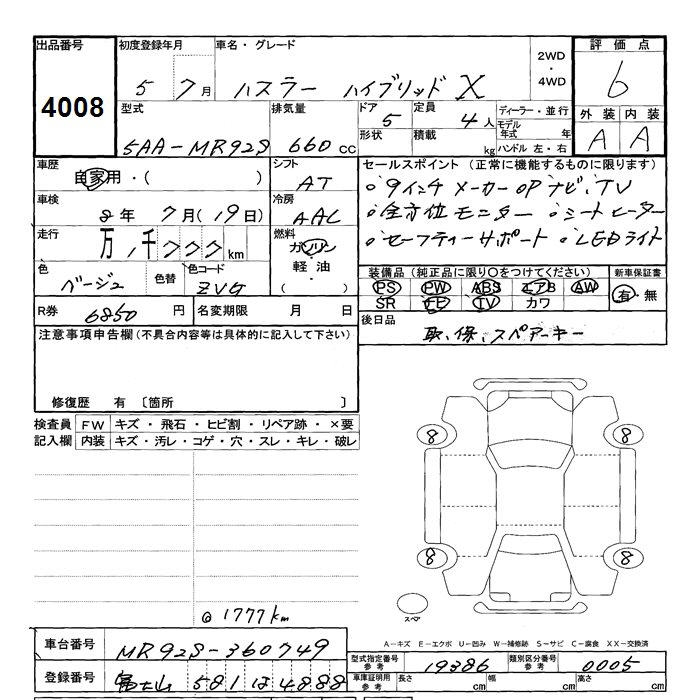 出品番号
4008
初度登録年月
5 7月
車名・グレード
ハスラー ハイブリッド X
2WD
・
4WD
評価点
6
型式
5AA-MR92S
排気量
660 CC
ドア
5
定員
4人
形状
積載
kg
ディーラー・並行
モデル年式 年
ハンドル 左・右
外装
内装
A
A
車歴
自家用・( )
シフト
AT
車検
8年 7月(19日)
冷房
AAC
走行
万,千777km
燃料
ガソリン
軽油・
( )
色
ベージュ
色替
色コード
ZVG
R券
6850 円
名変期限 月 日
セールスポイント(正常に機能するものに限ります)
・9インチ メーカーOPナビ、TV
・全方位モニター ・シートヒーター
・セーフティーサポート ・LEDライト
装備品(純正品に限り○をつけてください)
PS PW ABS エアB AW
SR ナビ TV カワ
新車保証書
有・無
後日品
取、保、スペアーキー
注意事項申告欄(不具合内容等は具体的に記入して下さい)
修復歴 有 〔箇所 〕
検査員記入欄
FW キズ・飛石・ヒビ割・リペア跡・×要
内装 キズ・汚レ・コゲ・穴・スレ・キレ・破レ
8
8
8
8
スペア
@1777km
A-キズ E-エクボ U-凹み W-補修跡 S-サビ C-腐食 XX-交換済
車台番号
MR92S-360749
登録番号
富士山 581 は 4888
型式指定番号
参考
19386
類別区分番号
参考
0005
車庫証明用
参考
長さ cm 幅 cm 高さ cm